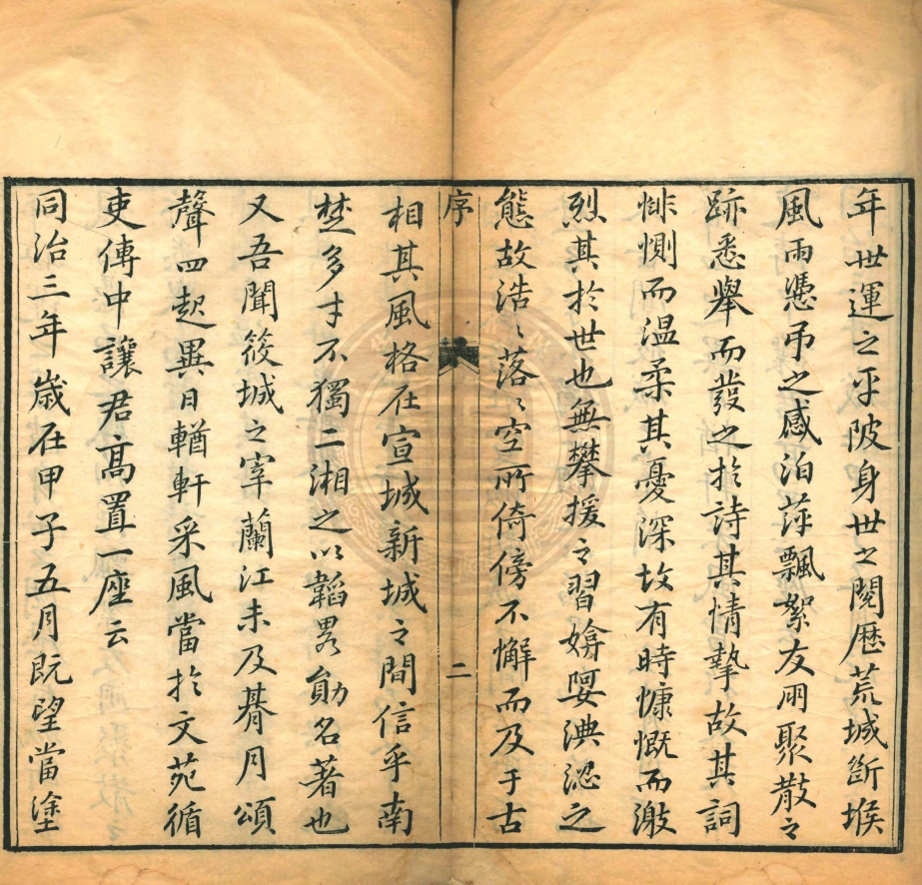 年世運之平陂身世之閱歷荒城斷堠
風雨憑弔之感泊萍飄絮友朋聚散之
跡悉舉而發之於詩其情摯故其詞
悱惻而溫柔其憂深故有時慷慨而激
烈其於世也無攀援之習媕婀淟涊之
態故浩〻落〻空所倚傍不懈而及于古
序
二
相其風格在宣城新城之間信乎南
楚多才不獨二湘之以韜畧勛名著也
又吾聞筱城之宰蘭江未及朞月頌
聲四起異日輶軒采風當於文苑循
吏傳中讓君高置一座云
同治三年歲在甲子五月既望當塗